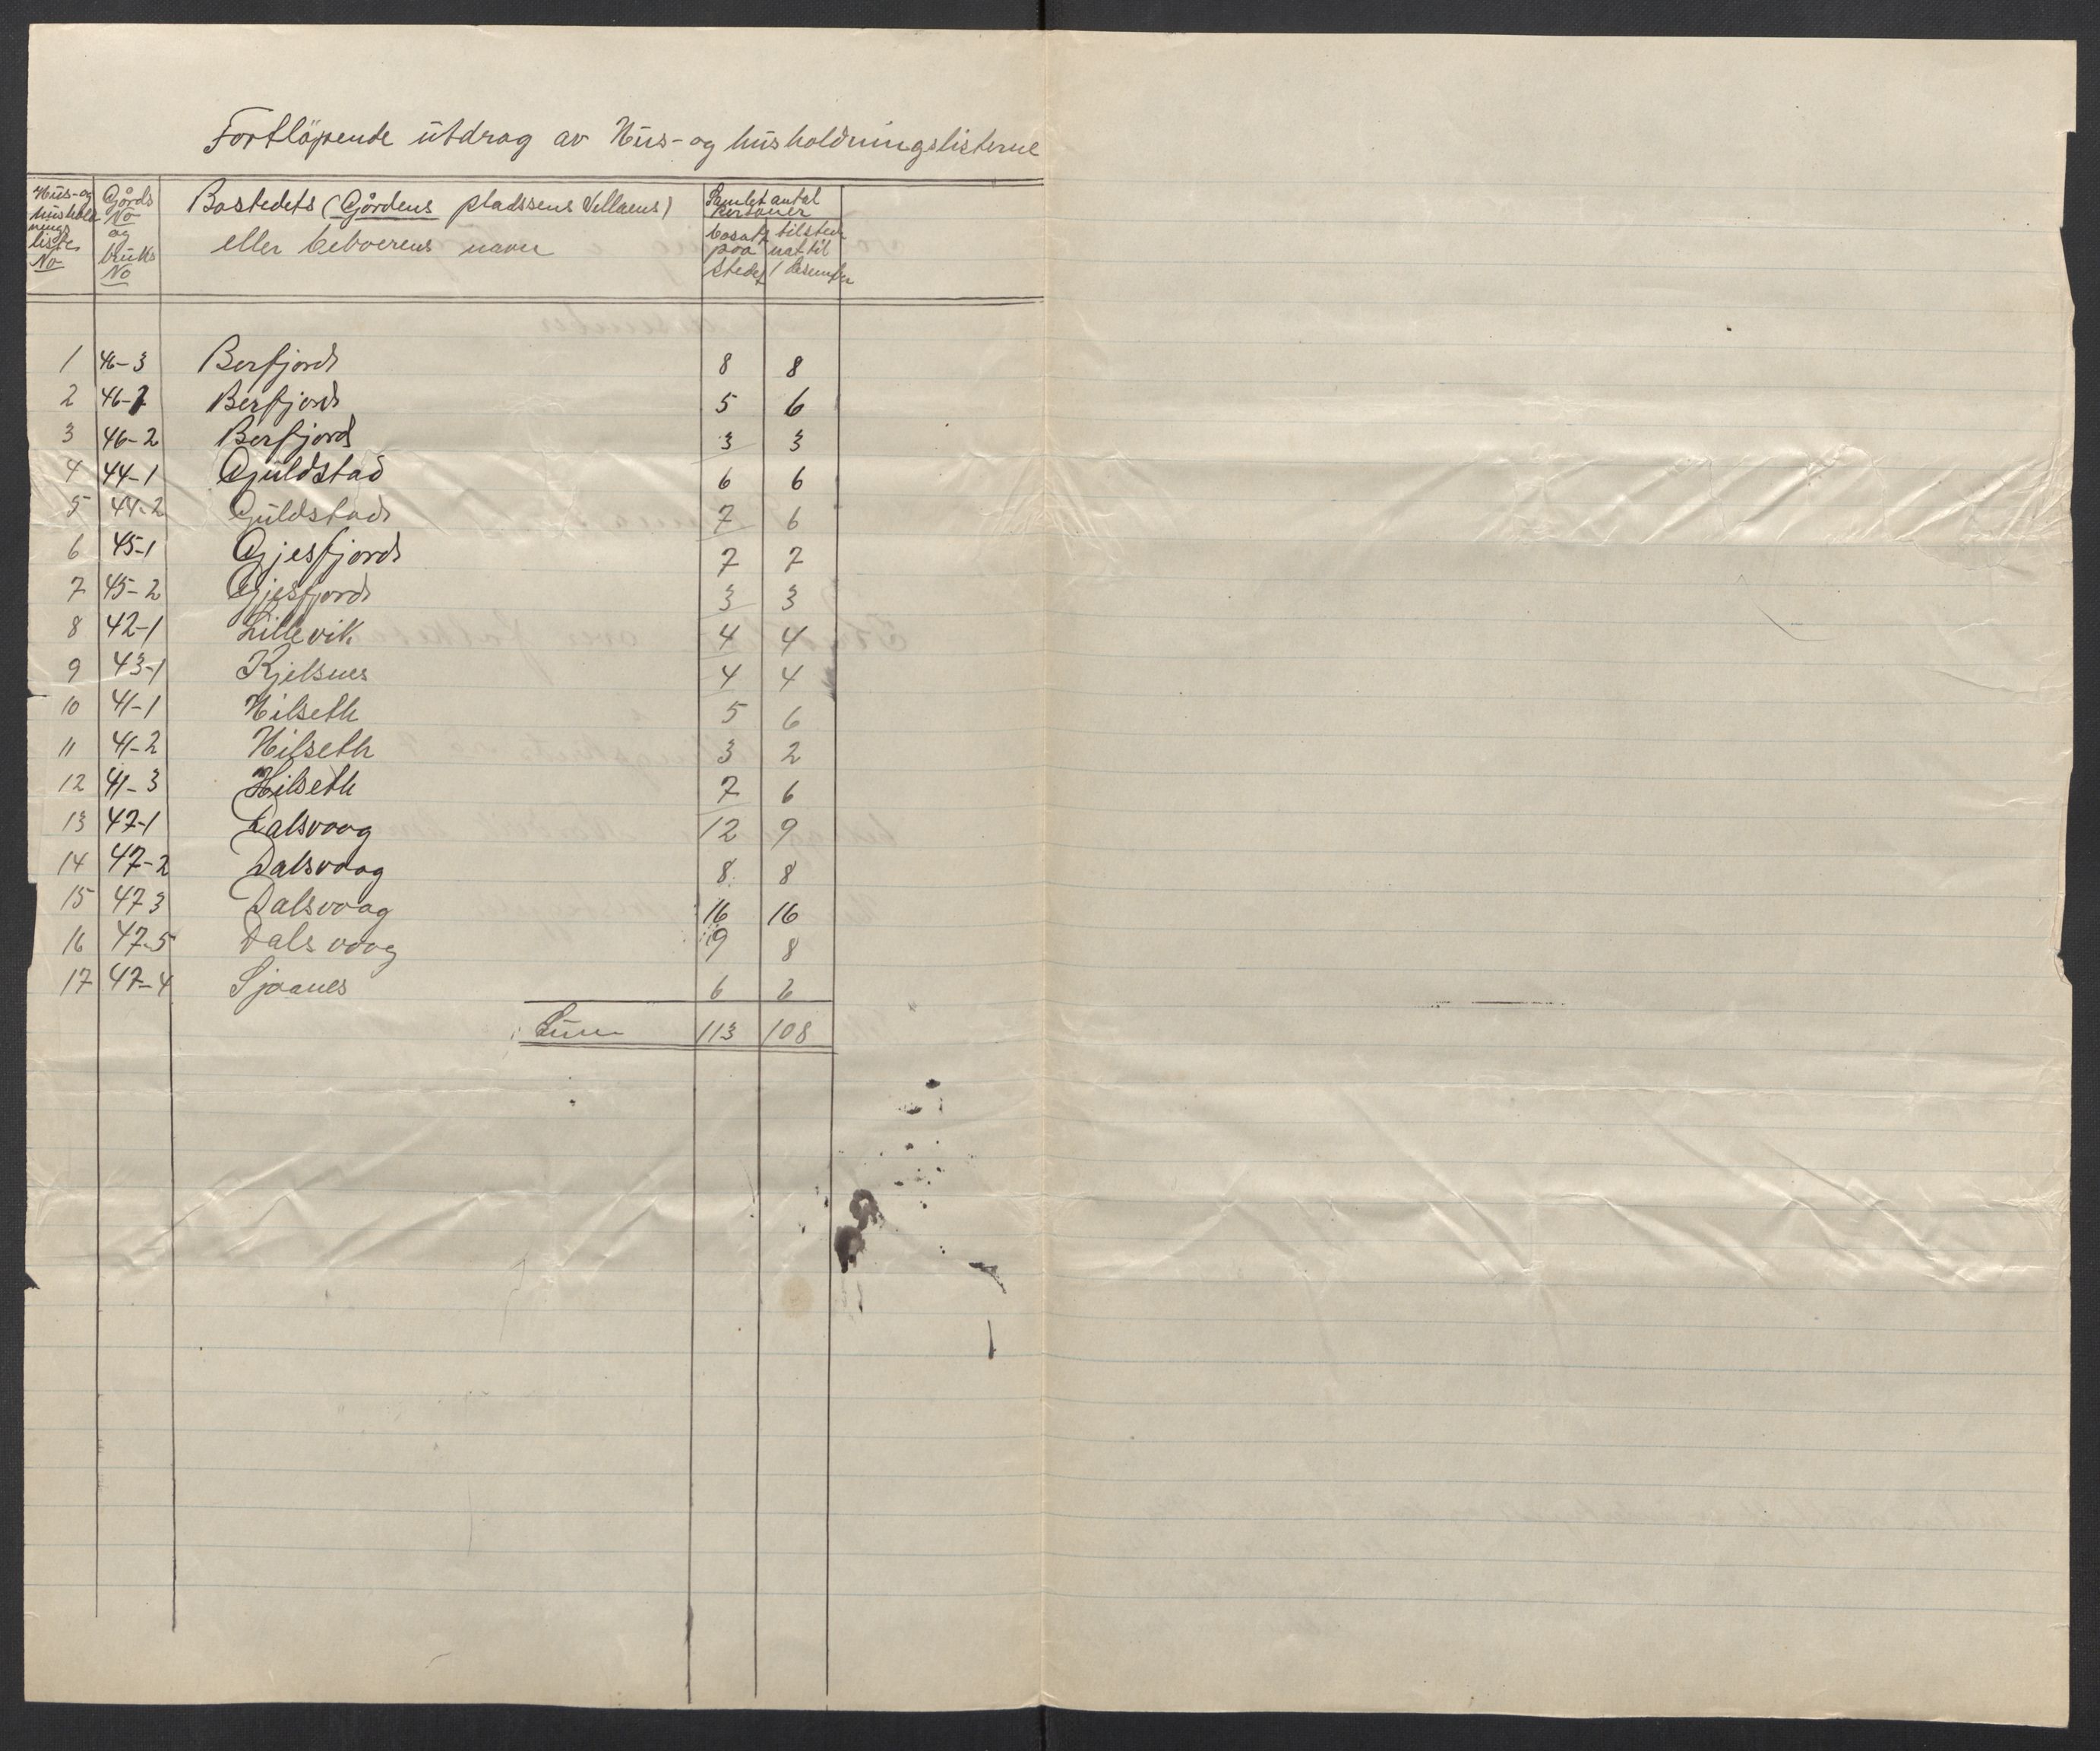 Fortløpende utdrag av Hus- og husholdningslisterne
Hus- og hushold nings liste No
Gårds No og bruks No
Bostedets (Gårdens pladssens Villaens)
eller beboerens navn
Samlet antal personer
bosatt paa stedet
tilstede nat til 1 desember
1 46-3 Borfjord 8 8
2 46-1 Borfjord 5 6
3 46-2 Borfjord 3 3
4 44-1 Guldstad 6 6
5 44-2 Guldstad 7 6
6 45-1 Gjesfjord 7 7
7 45-2 Gjesfjord 3 3
8 42-1 Lillevik 4 4
9 43-1 Kjelsnes 4 4
10 41-1 Hilseth 5 6
11 41-2 Hilseth 3 2
12 41-3 Hilseth 7 6
13 47-1 Dalsvaag 12 9
14 47-2 Dalsvaag 8 8
15 47 3 Dalsvaag 16 16
16 47-5 Dalsvaag 9 8
17 47-4 Sjaanes 6 6
Sum 113 108